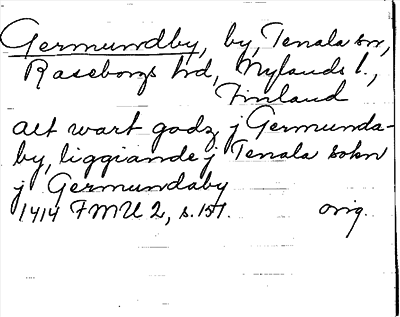 Germundby, by, Tenala sn,
Raseborgs hd, Nylands l.,
Finland
alt wart godz j Germunda-
by, liggiande j Tenala sokn
j Germundaby
1414 FMU 2, s. 151. orig.